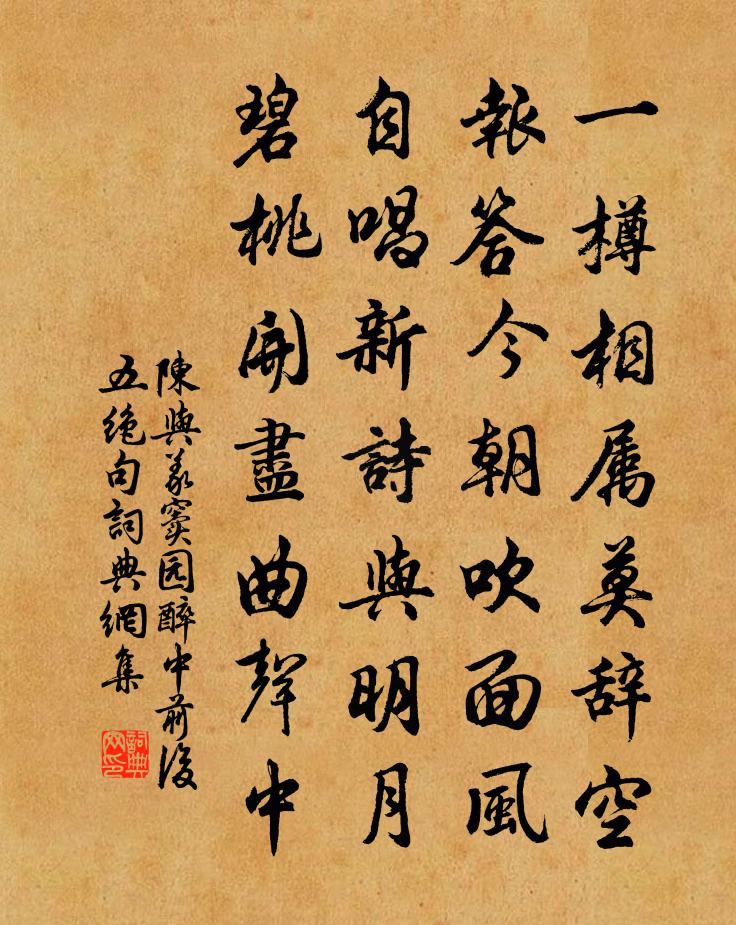 一樽相属莫辞空
報答今朝吹面風
自唱新詩與明月
碧桃開盡曲聲中
陳與義窦园醉中前後
五絶句詞典網集
詞典網印